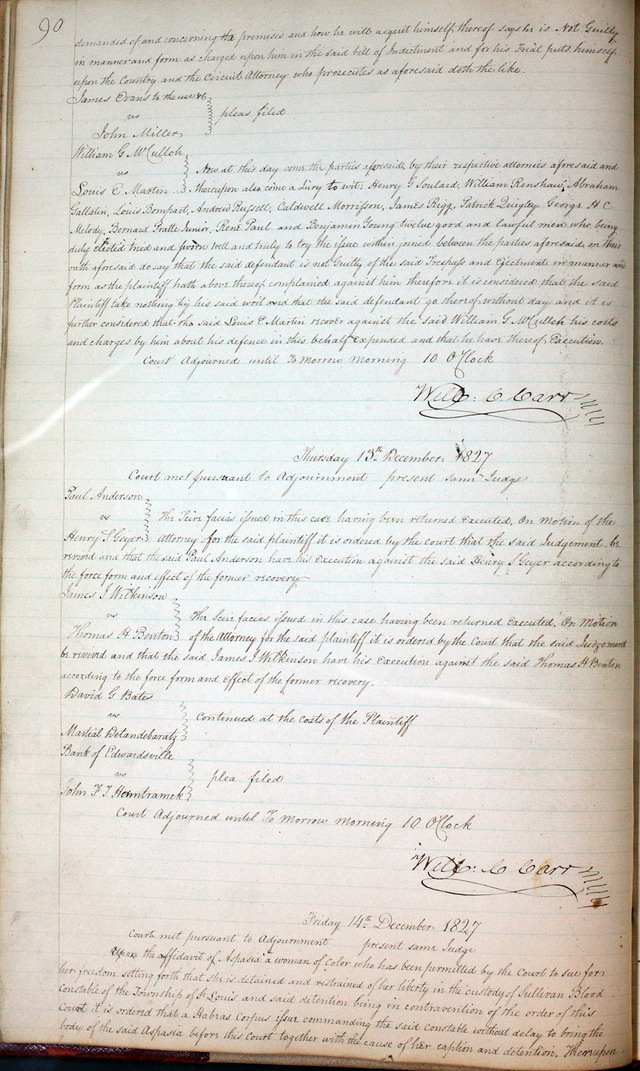 90
demanded of and concerning the premises and how he will acquit himself thereof says he is Not Guilty
in manner and form as charged upon him in the said bill of Indictment and for his Trial puts himself
upon the Country and the Circuit Attorney who prosecutes as aforesaid doth the like.
James Evans to the use &c
vs
pleas filed
John Miller
William G McCulloh
vs
Now at this day come the parties aforesaid by their respective attornies aforesaid and
Louis E Martin
thereupon also come a Jury to wit, Henry G Soulard, William Renshaw, Abraham
Gallatin, Louis Bompart, Andrew Russell, Caldwell Morrison, James Rigg, Patrick Quigley George H C
Melody, Bernard Pratte Junior, René Paul and Benjamin Young twelve good and lawful men who being
duly elected tried and sworn well and truly to try the issue within joined between the parties aforesaid on their
oath aforesaid do say that the said defendant is not Guilty of the said Trespass and Ejectment in manner and
form as the plaintiff hath above thereof complained against him therefore it is considered that the said
Plaintiff take nothing by his said writ and that the said defendant go thereof without day and it is
further considered that the said Louis E Martin recover against the said William G McCulloh his costs
and charges by him about his defence in this behalf expended and that he have thereof Execution.
Court Adjourned until To Morrow morning 10 OClock
Will: C Carr
Thursday 13th December 1827
Court met pursuant to Adjournment present same Judge
Paul Anderson
vs
The Scire facias issued in this case having been returned Executed. On Motion of the
Henry S Geyer
Attorney for the said plaintiff it is ordered by the court that the said Judgement be
revived and that the said Paul Anderson have his Execution against the said Henry S Geyer according to
the force form and effect of the former recovery
James J Wilkinson
vs
The Scire facias issued in this case having been returned Executed. On Motion
Thomas H Benton
of the Attorney for the said plaintiff it is ordered by the Court that the said Judgement
be revived and that the said James J Wilkinson have his Execution against the said Thomas H Benton
according to the force form and effect of the former recovery.
David G Bates
vs
Continued at the costs of the Plaintiff
Martial Detandebaratz
Bank of Edwardsville
vs
plea filed
John F T Hamtramck
Court Adjourned until To Morrow morning 10 OClock
Will: C Carr
Friday 14th December 1827
Court met pursuant to Adjournment present same Judge
Upon the affidavit of Aspasia a woman of Color who has been permitted by the Court to sue for
her freedom setting forth that she is detained and restrained of her liberty in the custody of Sullivan Blood
Constable of the Township of St Louis and said detention being in contravention of the order of this
Court it is ordered that a Habeas Corpus issue commanding the said constable without delay to bring the
body of the said Aspasia before this Court together with the cause of her caption and detention. Thereupon